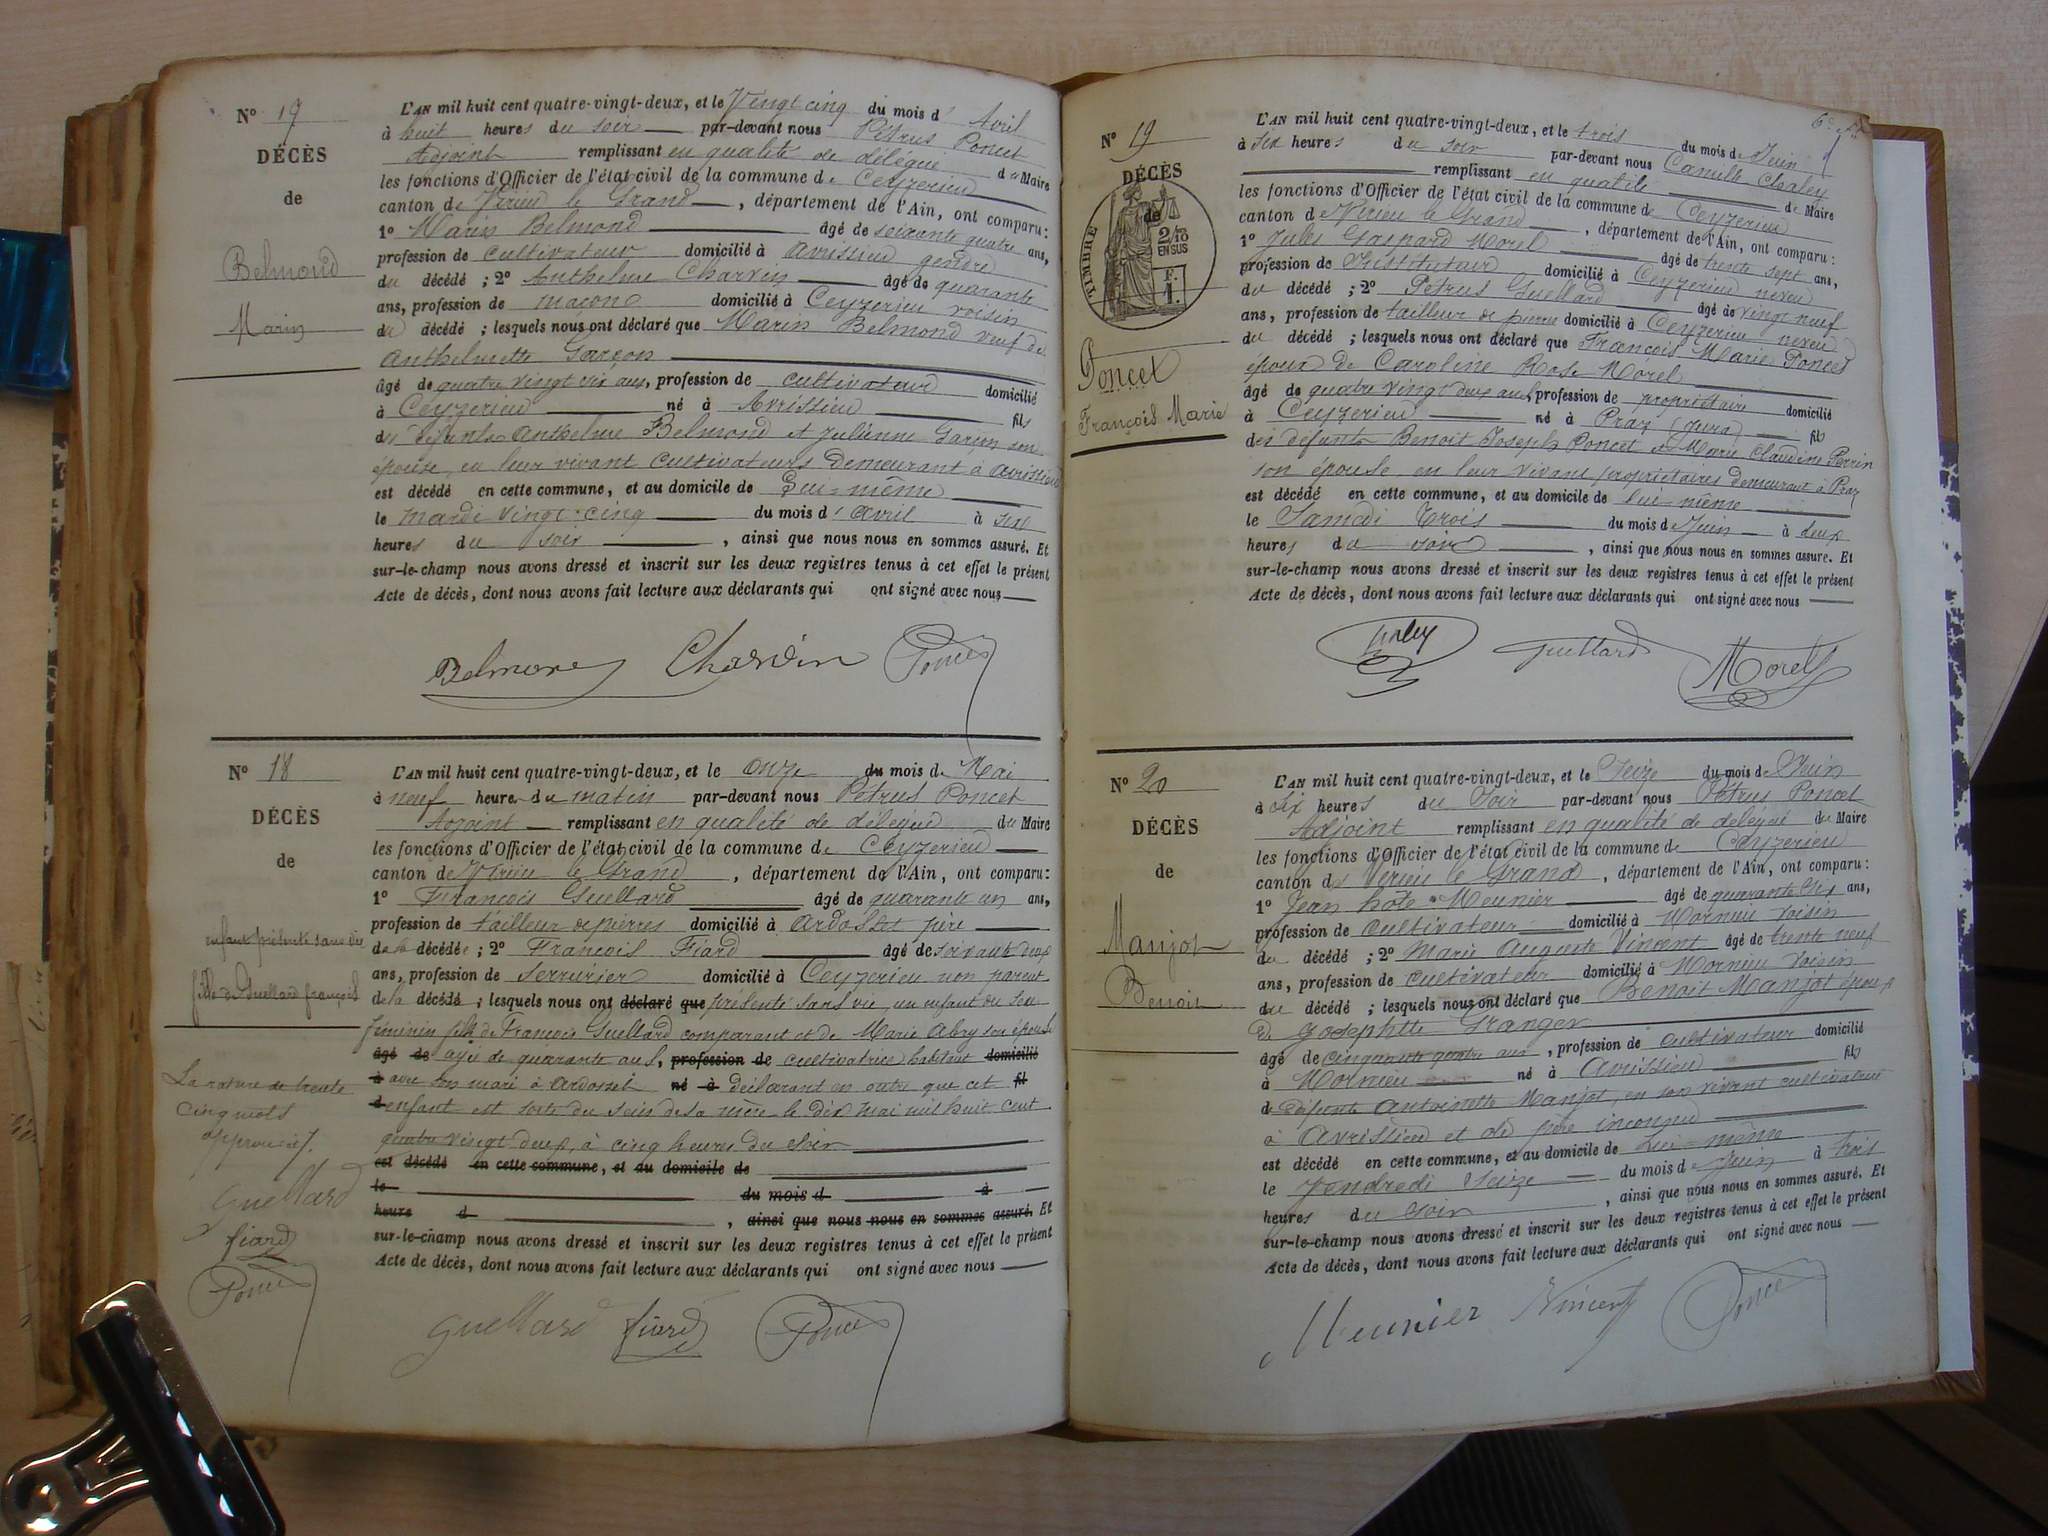 N° 17
DÉCÈS
de
Belmond
Marin
L'AN mil huit cent quatre-vingt-deux, et le Vingt cinq du mois d' Avril
à huit heures du soir par-devant nous Pétrus Poncet
Adjoint remplissant en qualité de délégué du Maire
les fonctions d'Officier de l'état civil de la commune de Ceyzerieu
canton de Virieu le Grand, département de l'Ain, ont comparu:
1° Marin Belmond âgé de soixante quatre ans,
profession de cultivateur domicilié à avrissieu gendre
du décédé ; 2° Anthelme Charvin âgé de quarante
ans, profession de maçon domicilié à Ceyzerieu voisin
du décédé ; lesquels nous ont déclaré que Marin Belmond veuf de
Anthelmette Garçon
âgé de quatre vingt six ans, profession de cultivateur domicilié
à Ceyzerieu né à Avrissieu fils
des défunts Anthelme Belmond et Julienne Garçon son
épouse, en leur vivant cultivateurs demeurant à avrissieu
est décédé en cette commune, et au domicile de Lui-même
le mardi vingt-cinq du mois d'Avril à six
heures du soir, ainsi que nous nous en sommes assuré. Et
sur-le-champ nous avons dressé et inscrit sur les deux registres tenus à cet effet le présent
Acte de décès, dont nous avons fait lecture aux déclarants qui ont signé avec nous
Belmond Charvin Poncet
N° 18
DÉCÈS
de
enfant présenté sans vie
fille de Guellard françois
La rature de trente
cinq mots
approuvée.
Guellard
fiard
Poncet
L'AN mil huit cent quatre-vingt-deux, et le onze du mois de Mai
à neuf heures du matin par-devant nous Pétrus Poncet
Adjoint remplissant en qualité de délégué du Maire
les fonctions d'Officier de l'état civil de la commune de Ceyzerieu
canton de Virieu le Grand, département de l'Ain, ont comparu:
1° François Guellard âgé de quarante un ans,
profession de tailleur de pierres domicilié à Ardosset père
de la décédée ; 2° François Fiard âgé de soixante deux
ans, profession de Serrurier domicilié à Ceyzerieu non parent
de la décédé ; lesquels nous ont déclaré que présenté sans vie, un enfant du sexe
féminin fille de François Guellard comparant et de Marie Abry son épouse
âgé de agée de quarante ans, profession de cultivatrice habitant domicilié
à avec son mari à Ardosset né à déclarant en outre que cet fil
d enfant est sorti du sein de sa mère le dix mai mil huit cent
quatre vingt deux, à cinq heures du soir
est décédé en cette commune, et au domicile de
le du mois d à
heure d , ainsi que nous nous en sommes assuré. Et
sur-le-champ nous avons dressé et inscrit sur les deux registres tenus à cet effet le présent
Acte de décès, dont nous avons fait lecture aux déclarants qui ont signé avec nous
Guellard fiard Poncet
N° 19
DÉCÈS
de
TIMBRE
2/10
EN SUS
F.
1.
Poncet
François Marie
L'AN mil huit cent quatre-vingt-deux, et le trois du mois de Juin
à six heures du soir par-devant nous Camille Chaley
remplissant en qualité de Maire
les fonctions d'Officier de l'état civil de la commune de Ceyzerieu
canton de Virieu le Grand, département de l'Ain, ont comparu:
1° Jules Gaspard Morel âgé de trente sept ans,
profession de Instituteur domicilié à Ceyzerieu neveu
du décédé ; 2° Petrus Guellard âgé de vingt neuf
ans, profession de tailleur de pierre domicilié à Ceyzerieu neveu
du décédé ; lesquels nous ont déclaré que François Marie Poncet
époux de Caroline Rose Morel
âgé de quatre vingt deux ans, profession de propriétaire domicilié
à Ceyzerieu né à Praz (Jura) fils
des défunts Benoit Joseph Poncet et Marie Claudine Perrin
son épouse, en leur vivant propriétaires demeurant à Praz
est décédé en cette commune, et au domicile de lui-même
le Samedi trois du mois de Juin à deux
heures du soir, ainsi que nous nous en sommes assuré. Et
sur-le-champ nous avons dressé et inscrit sur les deux registres tenus à cet effet le présent
Acte de décès, dont nous avons fait lecture aux déclarants qui ont signé avec nous
Chaley Guellard Morel
N° 20
DÉCÈS
de
Manjot
Benoit
L'AN mil huit cent quatre-vingt-deux, et le Seize du mois de Juin
à six heures du Soir par-devant nous Pétrus Poncet
Adjoint remplissant en qualité de délégué du Maire
les fonctions d'Officier de l'état civil de la commune de Ceyzerieu
canton de Virieu le Grand, département de l'Ain, ont comparu:
1° Jean Meunier âgé de quarante six ans,
profession de cultivateur domicilié à Mornieu voisin
du décédé ; 2° Marie Auguste Vincent âgé de trente neuf
ans, profession de cultivateur domicilié à Mornieu voisin
du décédé ; lesquels nous ont déclaré que Benoit Manjot époux
de Josephte Granger
âgé de cinquante quatre ans, profession de cultivateur domicilié
à Mornieu né à Avrissieu fils
de défunte Antoinette Manjot, en son vivant cultivateur
à Avrissieu et de père inconnu
est décédé en cette commune, et au domicile de Lui-même
le Vendredi Seize du mois de Juin à trois
heures du soir, ainsi que nous nous en sommes assuré. Et
sur-le-champ nous avons dressé et inscrit sur les deux registres tenus à cet effet le présent
Acte de décès, dont nous avons fait lecture aux déclarants qui ont signé avec nous
Meunier Vincent Poncet